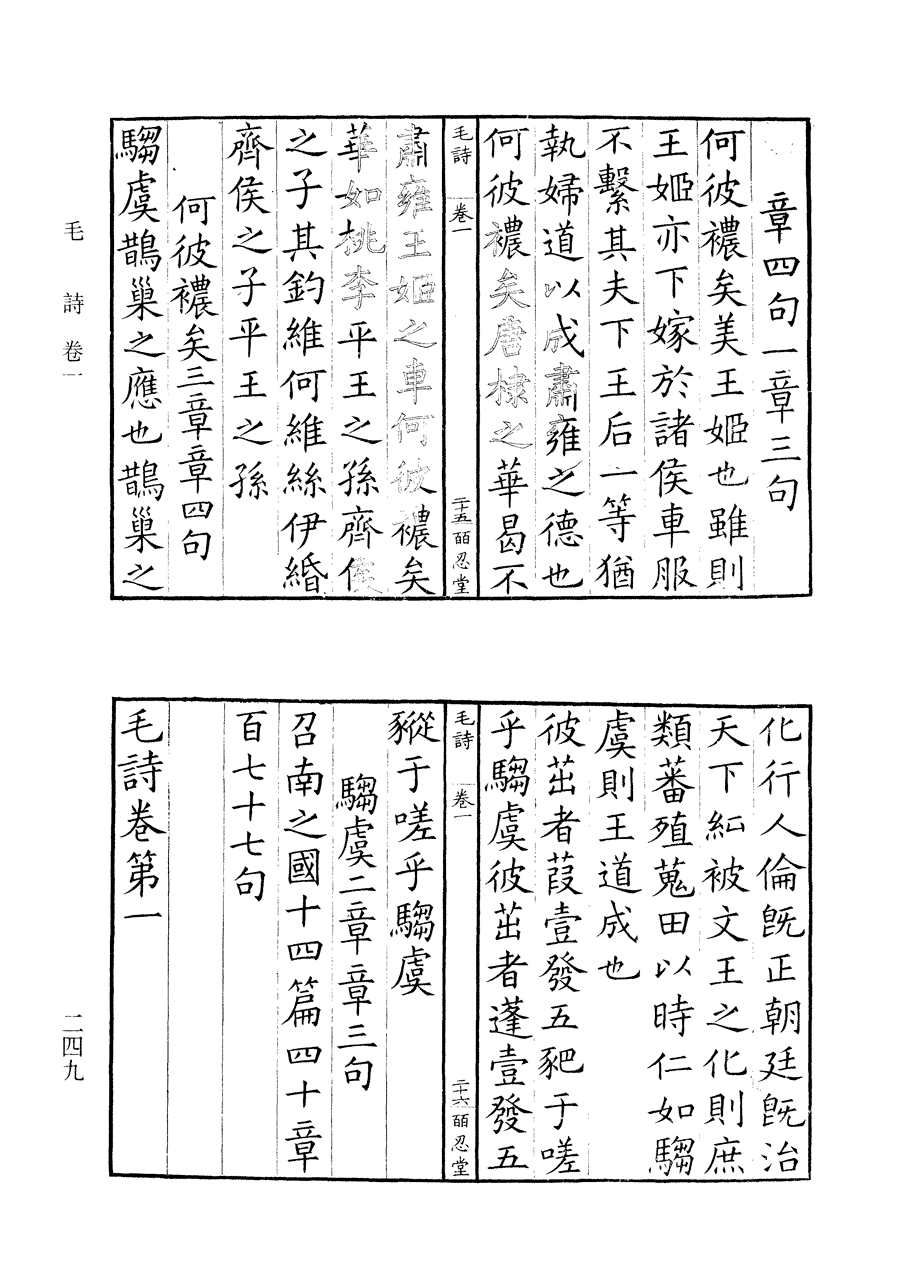 章四句一章三句
何彼襛矣美王姬也雖則
王姬亦下嫁於諸侯車服
不繫其夫下王后一等猶
執婦道以成肅雍之德也
何彼襛矣唐棣之華曷不
毛詩 卷一 二十五 皕忍堂
肅雍王姬之車何彼襛矣
華如桃李平王之孫齊侯
之子其釣維何維絲伊緡
齊侯之子平王之孫
何彼襛矣三章章四句
騶虞鵲巢之應也鵲巢之
化行人倫旣正朝廷旣治
天下糺被文王之化則庶
類蕃殖蒐田以時仁如騶
虞則王道成也
彼茁者葭壹發五豝于嗟
乎騶虞彼茁者蓬壹發五
毛詩 卷一 二十六 皕忍堂
豵于嗟乎騶虞
騶虞二章章三句
召南之國十四篇四十章
百七十七句
毛詩卷第一
毛詩 卷一
二四九